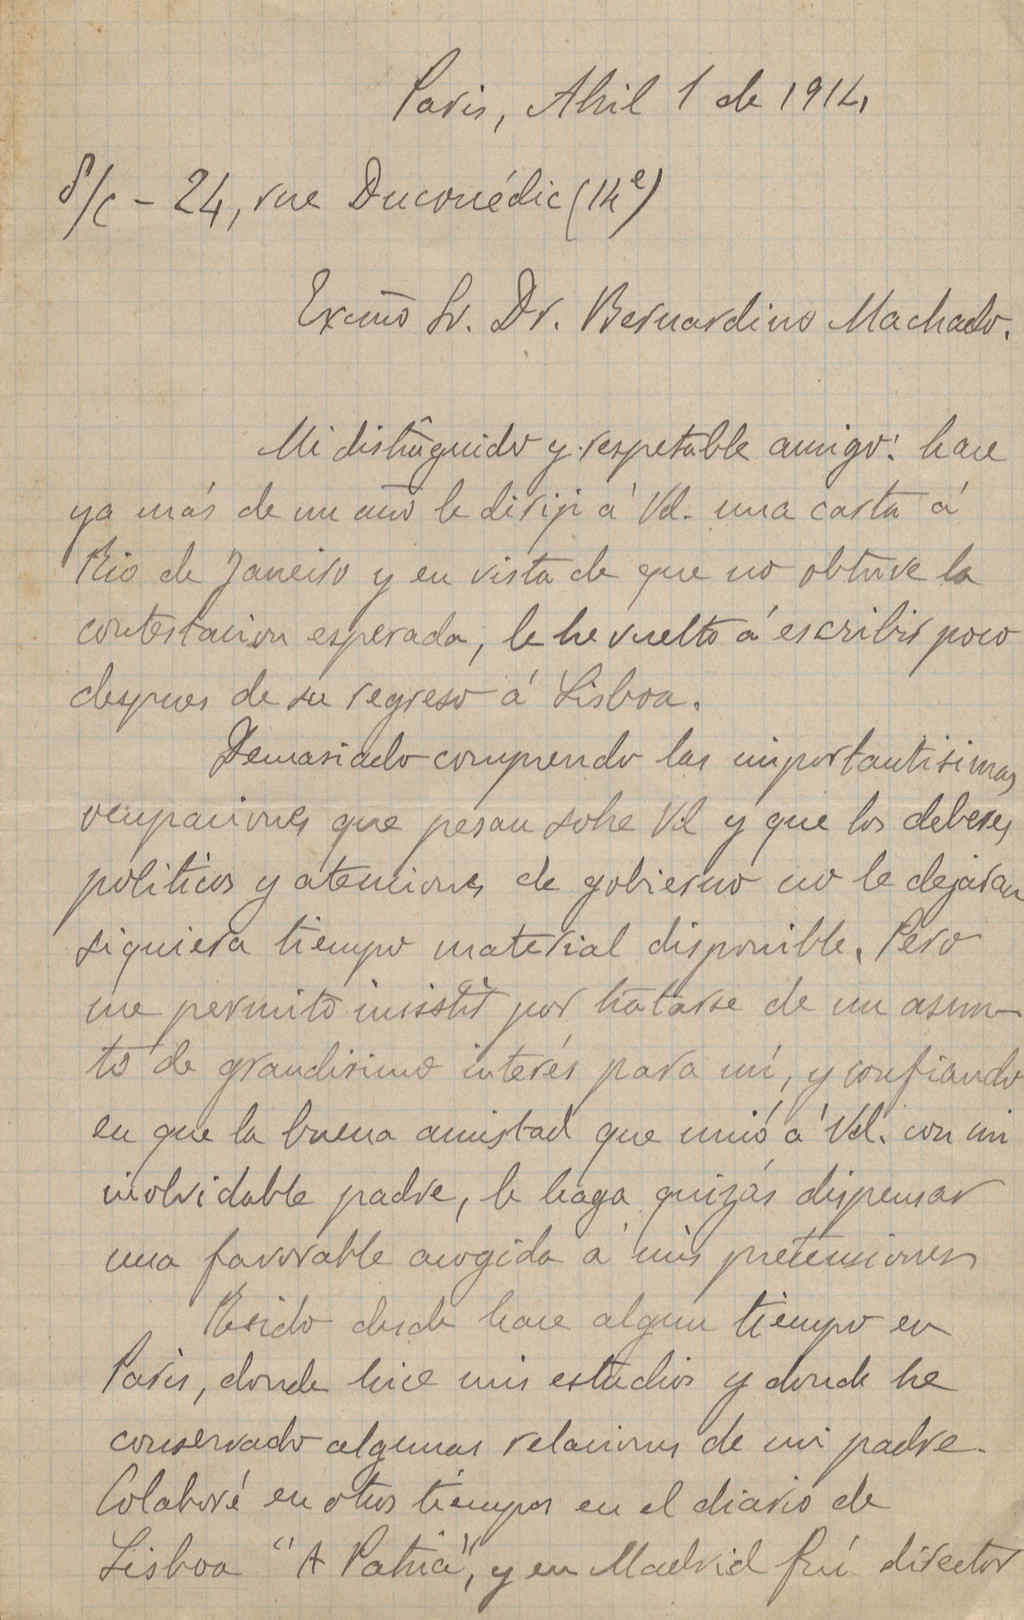 Paris, Abril 1 de 1914,
S/c - 24, rue Ducouédic (14e)
Exmo Sr. Dr. Bernardino Machado.
Mi distinguido y respetable amigo: hace
ya más de un año le dirijí á Vd. una carta á
Rio de Janeiro y en vista de que no obtuve la
contestacion esperada, le he vuelto á escribir poco
despues de su regreso á Lisboa.
Demasiado comprendo las importantisimas
ocupaciones que pesan sobre Vd y que los deberes
politicos y atenciones de gobierno no le dejaran
siquiera tiempo material disponible. Pero
me permito insistir por tratarse de un asun-
to de grandisimo interés para mí, y confiando
en que la buena amistad que unió á Vd. con mi
inolvidable padre, le haga quizás dispensar
una favorable acogida á mis pretensiones
Resido desde hace algun tiempo en
Paris, donde hice mis estudios y donde he
conservado algunas relaciones de mi padre.
Colaboré en otros tiempos en el diario de
Lisboa "A Patria", y en Madrid fuí director